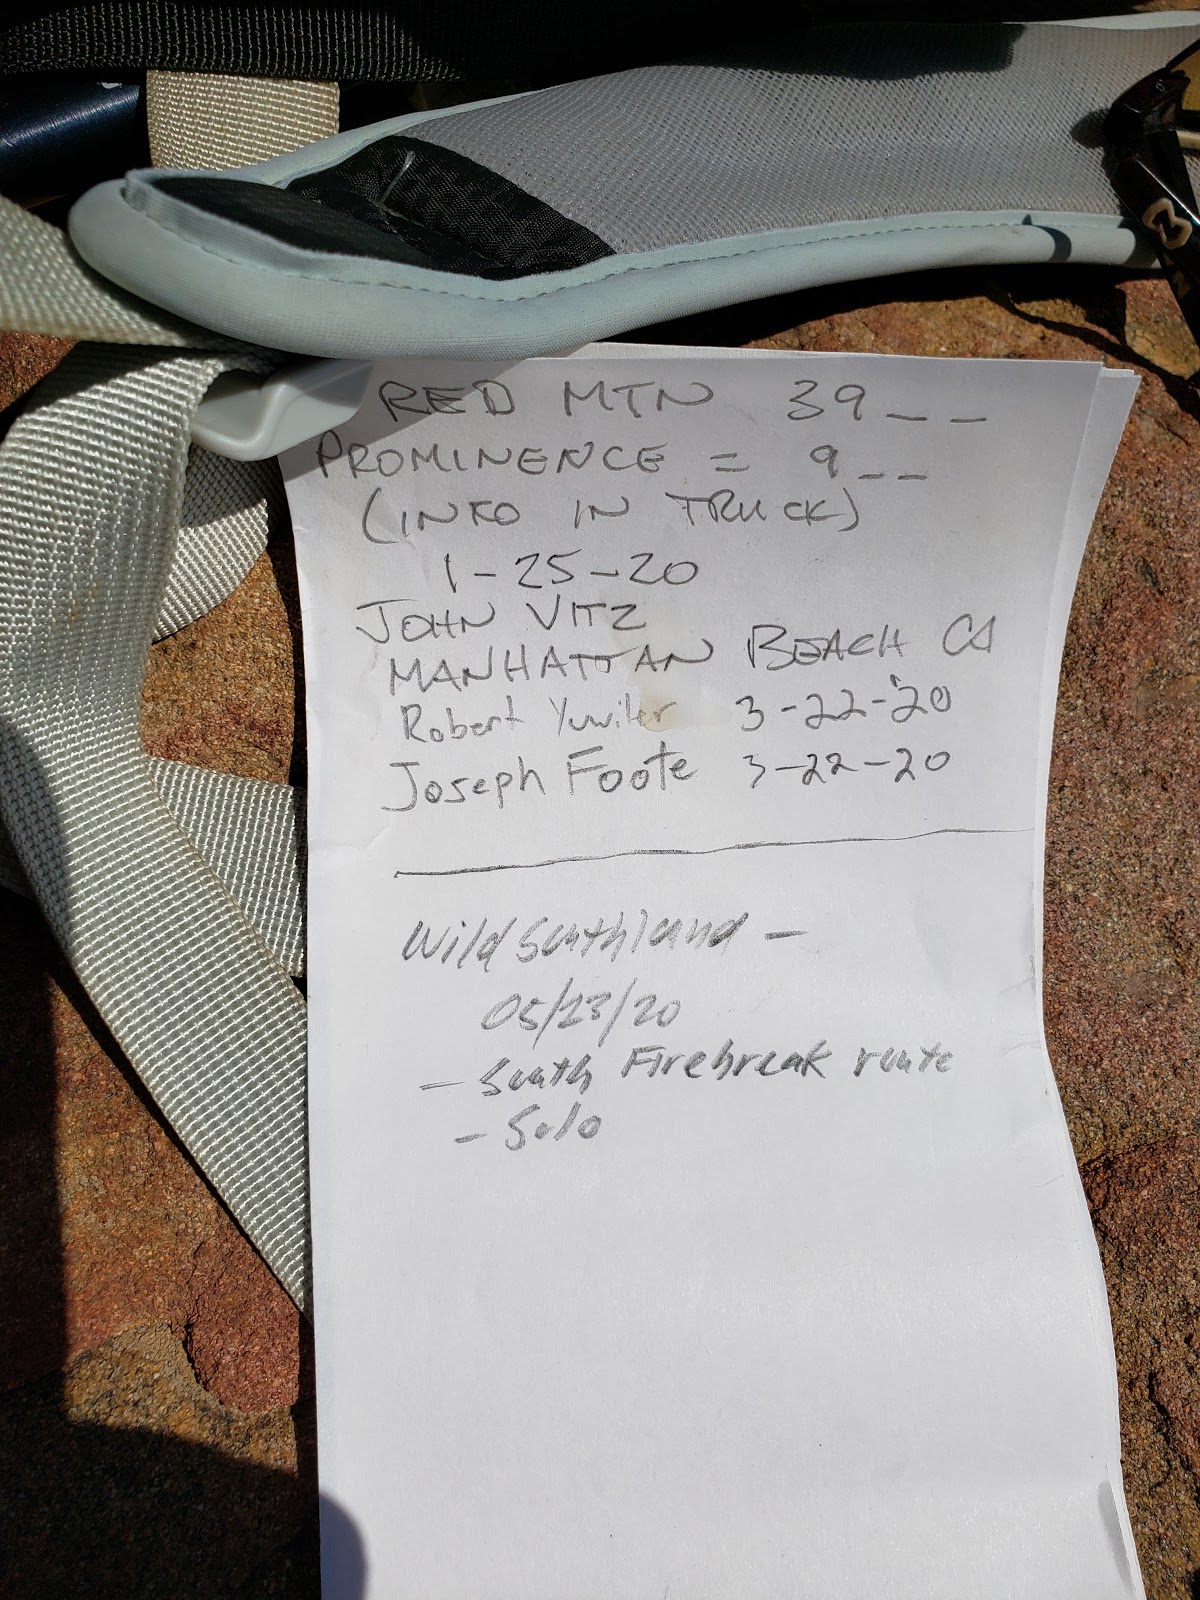 RED MTN 39__
PROMINENCE = 9__
(INFO IN TRUCK)
1-25-20
JOHN VITZ
MANHATTAN BEACH CA
Robert Yuwiler 3-22-'20
Joseph Foote 3-22-20
Wild Southland -
05/23/20
- South Firebreak route
- Solo